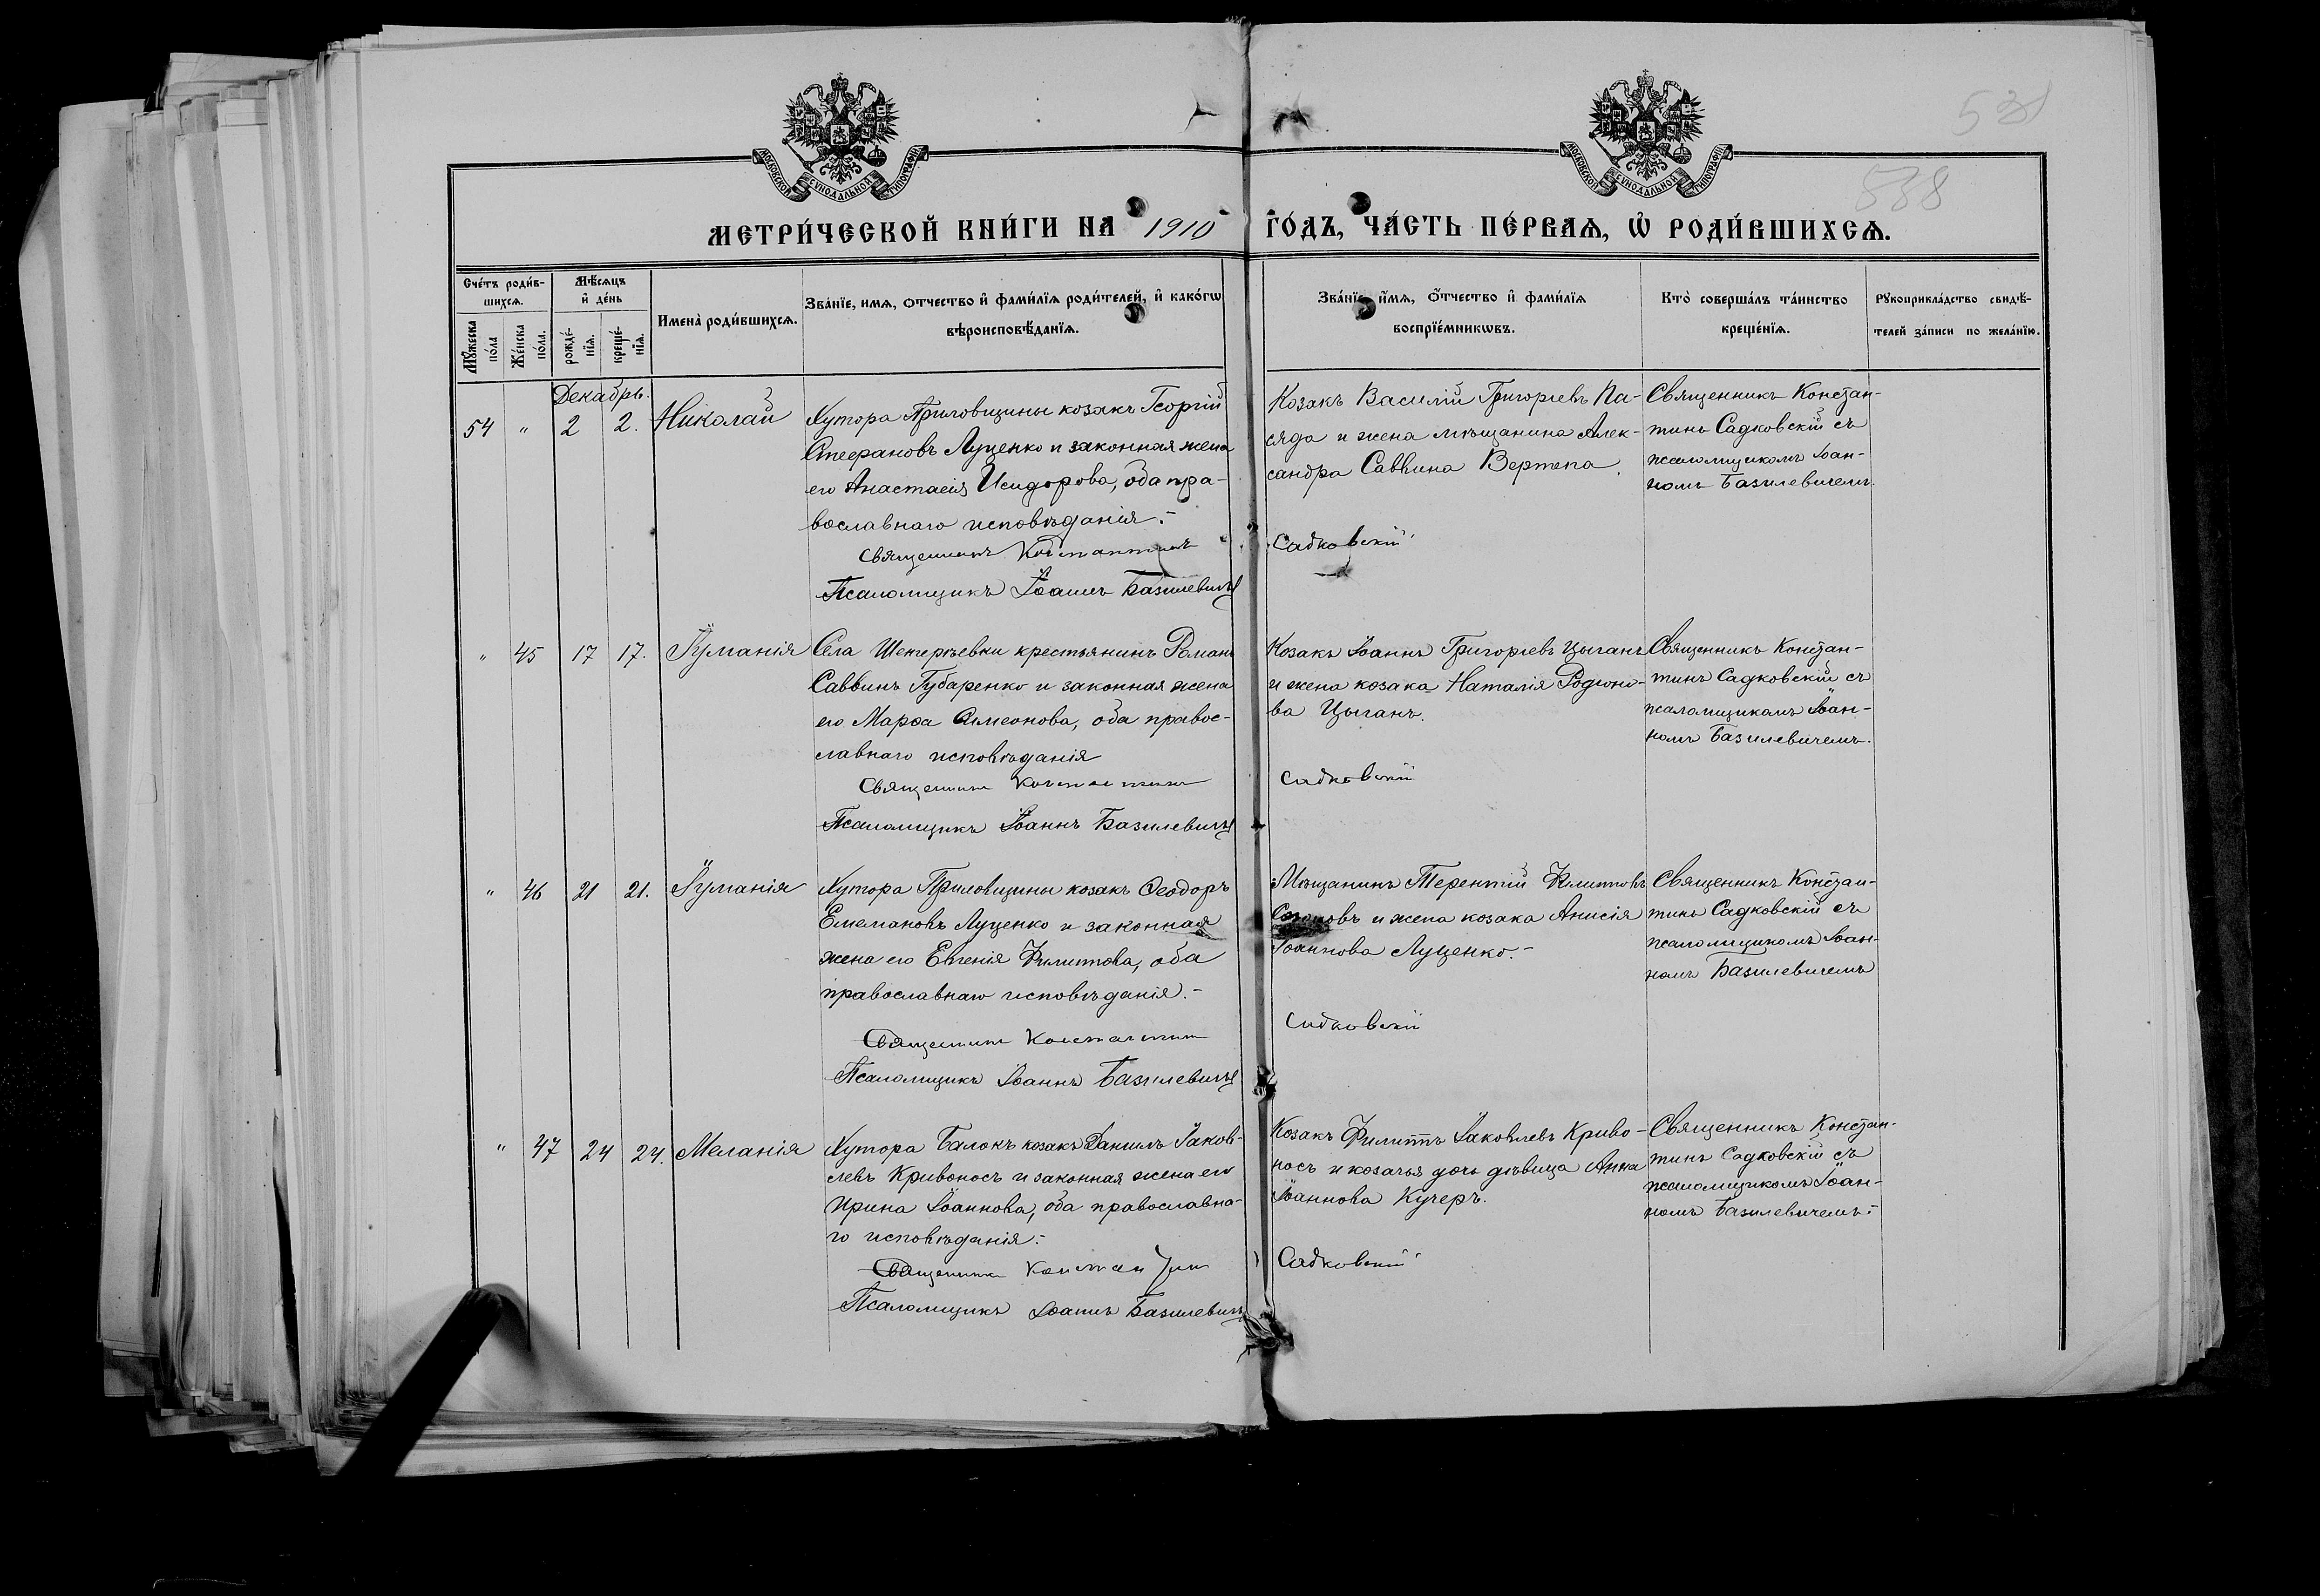 МОСКОВСКОЙ СѴНОДАЛЬНОЙ ТИПОГРАФІИ
МОСКОВСКОЙ СѴНОДАЛЬНОЙ ТИПОГРАФІИ
538
МЕТРИ́ЧЕСКОЙ КНИ́ГИ НА 1910 ГО́ДЪ, ЧА́СТЬ ПЕ́РВАѦ, Ѡ РОДИ́ВШИХСѦ.
Сче́тъ роди́в-
шихсѧ.
Мꙋ́жеска по́ла
Же́нска по́ла.
Мѣ́сѧцъ
и҆ де́нь
рожде́-нїѧ.
креще́-нїѧ.
Имена̀ роди́вшихсѧ.
Зва́нїе, имѧ, ѻтчество и҆ фами́лїѧ роди́телей, и҆ како́гѡ
вѣроисповѣ́данїѧ.
Зва́нїе, и҆мѧ, ѻтчество и҆ фами́лїѧ
воспрїе́мникѡвъ.
Кто̀ соверша́лъ та́инство
креще́нїѧ.
Рꙋкоприкла́дство свидѣ́-
телей за́писи по жела́нїю.
Декабрь.
54 " 2 2. Николай
Хутора Приловщины козакъ Георгій
Стефановъ Луценко и законная жена
его Анастасія Исидорова, оба пра-
вославнаго исповѣданія.-
Священникъ Константинъ
Псаломщикъ Іоаннъ Базилевичъ
Козакъ Василій Григорьевъ Па-
сяда и жена мѣщанина Алек-
сандра Саввина Вертепа.
Садковскій
Священникъ Констан-
тинъ Садковскій съ
псаломщикомъ Іоан-
номъ Базилевичемъ.
" 45 17 17. Іуліанія
Села крестьянинъ Романъ
Саввинъ Губаренко и законная жена
его Марѳа Симеонова, оба правос-
славнаго исповѣданія
Священникъ Константинъ
Псаломщикъ Іоаннъ Базилевичъ
Козакъ Іоаннъ Григорьевъ Цыганъ
и жена козака Наталія Родіоно-
ва Цыганъ.
Садковскій
Священникъ Констан-
тинъ Садковскій съ
псаломщикомъ Іоан-
номъ Базилевичемъ.
" 46 21 21. Іуліанія
Хутора Приловщины козакъ Ѳеодоръ
Емельановъ Луценко и законная
жена его Евгенія Филиппова, оба
православнаго исповѣданія.-
Священникъ Константинъ
Псаломщикъ Іоаннъ Базилевичъ
Мѣщанинъ Терентій Филипповъ
и жена козака Анисія
Іоаннова Луценко.-
Садковскій
Священникъ Констан-
тинъ Садковскій съ
псаломщикомъ Іоан-
номъ Базилевичемъ
" 47 24 24. Меланія
Хутора Балокъ козакъ Даніилъ Іаков-
левъ Кривоносъ и законная жена его
Ирина Іоаннова, оба православна-
го исповѣданія.-
Священникъ Константин
Псаломщикъ Іоаннъ Базилевичъ
Козакъ Филиппъ Іаковлевъ Криво-
носъ и козачья дочь дѣвица Анна
Іоаннова Кучеръ.
Садковскій
Священникъ Констан-
тинъ Садковскій съ
псаломщикомъ Іоан-
номъ Базилевичемъ.-